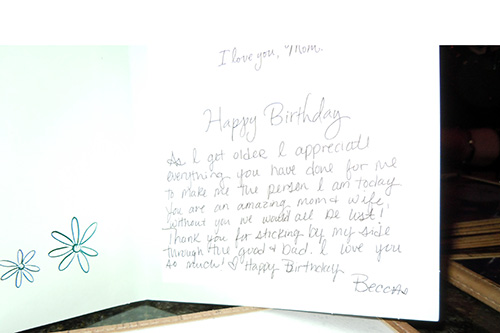 I love you, Mom.
Happy Birthday
As I get older I appreciate
everything you have done for me
to make me the person I am today
You are an amazing mom & wife,
without you we would all be lost!
Thank you for sticking by my side
through the good & bad. I love you
so much! Happy Birthday
Becca